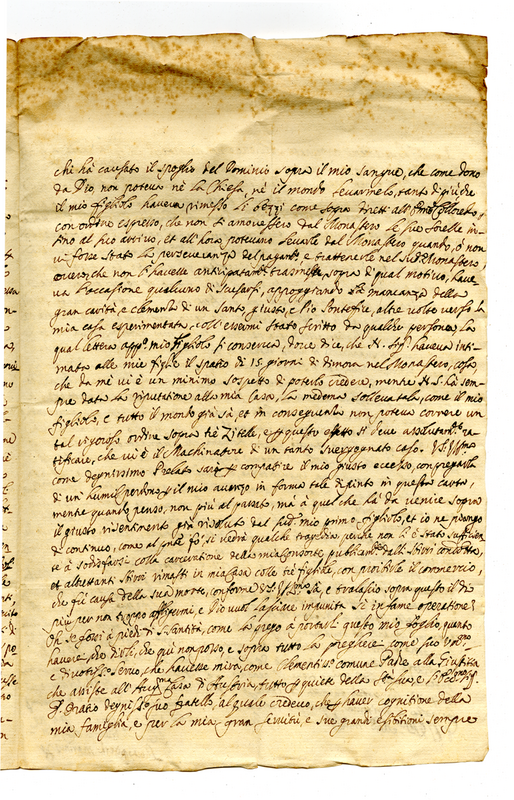 che hà causato il spoglio del Dominio sopra il mio sangue, che come dono
da Dio, non poteva nè la Chiesa, nè il mondo levarmelo, tanto di più che
il mio figliolo haveva rimesso li bezzi come sopra diretti all'
con ordine espresso, che non si amovessero dal Monastero le sue sorelle in-
sino al suo arrivo, et all'hora potevano levarle dal Monastero quando, ò non
vi fosse stata la perseveranza del pagam.to, e trattenerle nel Sud.o Monastero,
overo, che non li havesse trasmesse, sopra di qual motivo, have
va l'occasione qualcuno di scusarsi, appoggiando mancanza della
gran carità, e clemenza di un Santo, giusto, e Pio Pontefice, altre volte verso la
mia casa esperimentata, coll'essermi stato scritto da qualche persona, la
qual lettera app.o mio figliolo si conserva, dove dice, che N. Sig.re haveva inti-
mato alle mie figlie il spatio di 15 giorni di dimora nel Monastero, cosa
che da me vi è un minimo sospetto di poterlo credere, mentre N. S. hà sem-
pre data la riputatione alla mia Casa, la medema sollevata, come il mio
figliolo, e tutto il mondo già sà, et in conseguenza non poteva correre un
tal vigoroso ordine sopra trè Zitelle, e questo si deve
tificare, che vi è il Machinatore di un tanto caso. V.S. Ill.ma
come degnissimo Prelato sarà compatire il mio giusto eccesso,
di un humil perdono il mio avanzo in forma tale dipinto in questa carta,
mentre quanto penso, non più al passato, mà à quel che hà da venire sopra
il giusto risentimento già risoluto dal sud.o mio primo figliolo, et io ne piango
di continuo, come al fà, si vedrà qualche tragedia, perche non li è stato sufficien
te à sodisfarsi colla carceratione della mia Consorte publicam.te delli Sbirri condotta,
et altrettanti Sbirri rimasti in mia Casa colle trè figlie, con proibirle il commercio,
che fù causa della sua morte, conforme V.S. Ill.ma sà, e tralascio sopra questo il di
più per non troppo affligermi, e Dio vuol lasciare impunita sì infame operatione?
Oh se fossi à piedi di S. Santità, come la prego à portarli questo mio foglio, quanto
haverei che dirli, che quì non posso, e sopra tutto la pregherei come suo
e divotiss.o servo, che havesse mira, come Clementiss.o comune Padre alla Giustitia
che assiste all' Aug.ma Casa di Austria, tutto quiete della
Oratio degniss.o suo fratello, al quale credevo, che haver cognitione della
mia famiglia, e per la mia gran servitù, e sue grandi esibitioni sempre